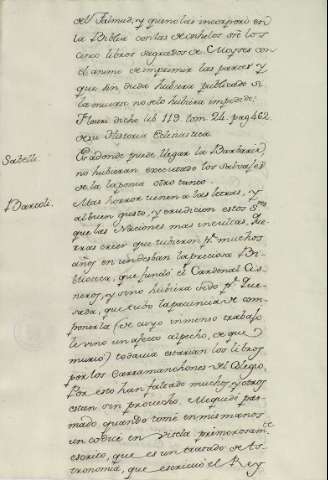 del Talmud, y que no las incorporó en
la Biblia con las de
cinco libros sagrados de Moyses con
el animo de imprimir las partes y
que sin duda hubiera publicado si
la muerte no se lo hubiera impedido.
Fleuri dicho lib 119 tom. 24. pag 462
de su Historia Eclesiastica.
Sabelli.
A donde puede llegar la Barbarie,
no hubieran executado los Salvajes
de la Laponia otro tanto.
Barcoli.
Mas horror tienen a las letras, y
al buen gusto, y erudicion estos S.res
que las Naciones mas incultas. Que-
rras creer que tubieron p.r muchos
años en un desban la preciosa Bi-
blioteca, que fundó el Cardenal Cis-
neros, y sino hubiera sido p.r Que-
sada, que tubo la paciencia de com-
ponerla (de cuyo inmenso trabajo
le vino un afecto al pecho, de que
murió) todavia estarian los libros
por los Carramanchones del Colegio.
Por esto han faltado muchos, y otros
estan sin provecho. Me quedé pas-
mado quando tomé en mis manos
un codice en vitela primorosam.te
escrito, que es un tratado de As-
tronomia, que escrivió el Rey